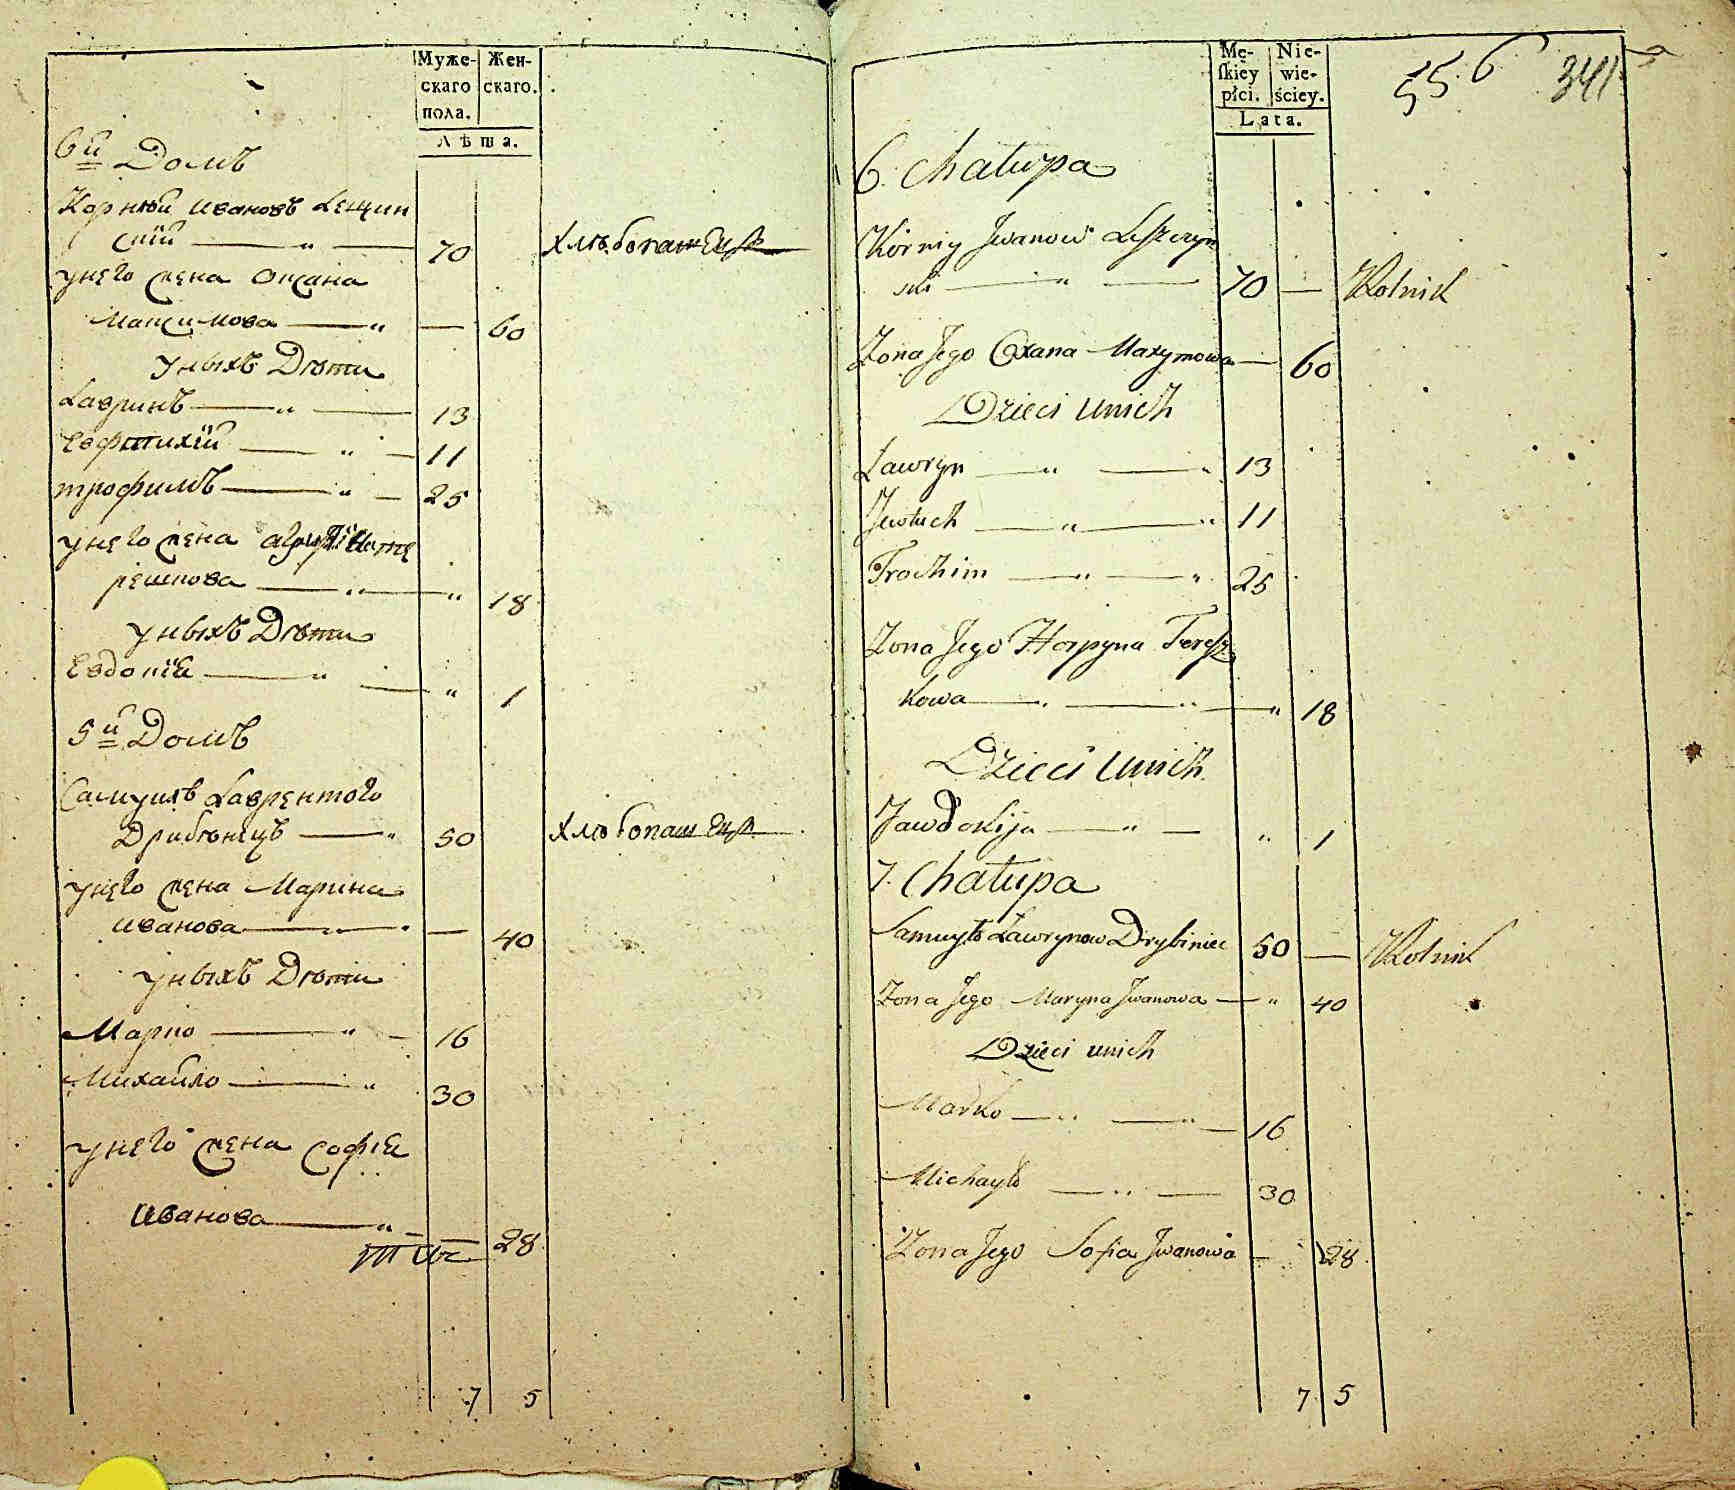 Муже-
скаго
пола.
Жен-
скаго.
Лѣта.
6й Домъ
Корній Ивановъ Лещин
скій — „ — 70 Хлѣбопашецъ
у него жена Оксана
Максимова — „ — 60
у ныхъ Дѣти
Лавринъ — „ — 13
Евфтихій — „ — 11
трофимъ — „ — 25
у него жена
решкова — „ — „ 18
у ныхъ Дѣти
Евдокіа — „ — „ 1
5й Домъ
Самуилъ Лаврентого
Дрибѣнецъ — „ 50 Хлѣбопашецъ
у него жена Марина
Иванова — „ — 40
у ныхъ Дѣти
Марко — „ — 16
Михайло — „ 30
у него жена Софіа
Иванова — „ — 28
7 5
Mę-
skiey
płci.
Nie-
wie-
ściey.
Lata.
556 341
6. Chałupa
Korniy Iwanow Leszczyn
ski — „ — 70 — Rolnik
Zona Jego Oxana Maxymowa — 60
Dzieci unich
Ławryn — „ — „ 13
Jewtuch — „ — „ 11
Trochim — „ — „ 25
Zona Jego HorpynaTeresz
kowa — „ — „ — „ 18
Dzieci unich
Jawdokija — „ — „ 1
7. Chałupa
Samuyło Ławrynow Drybiniec 50 — Rolnik
Zona Jego Maryna Iwanowa — „ 40
Dzieci unich
Marko — „ — „ — 16
Michayło — „ — 30
Zona Jego Sofia Iwanowa — 28
7 5